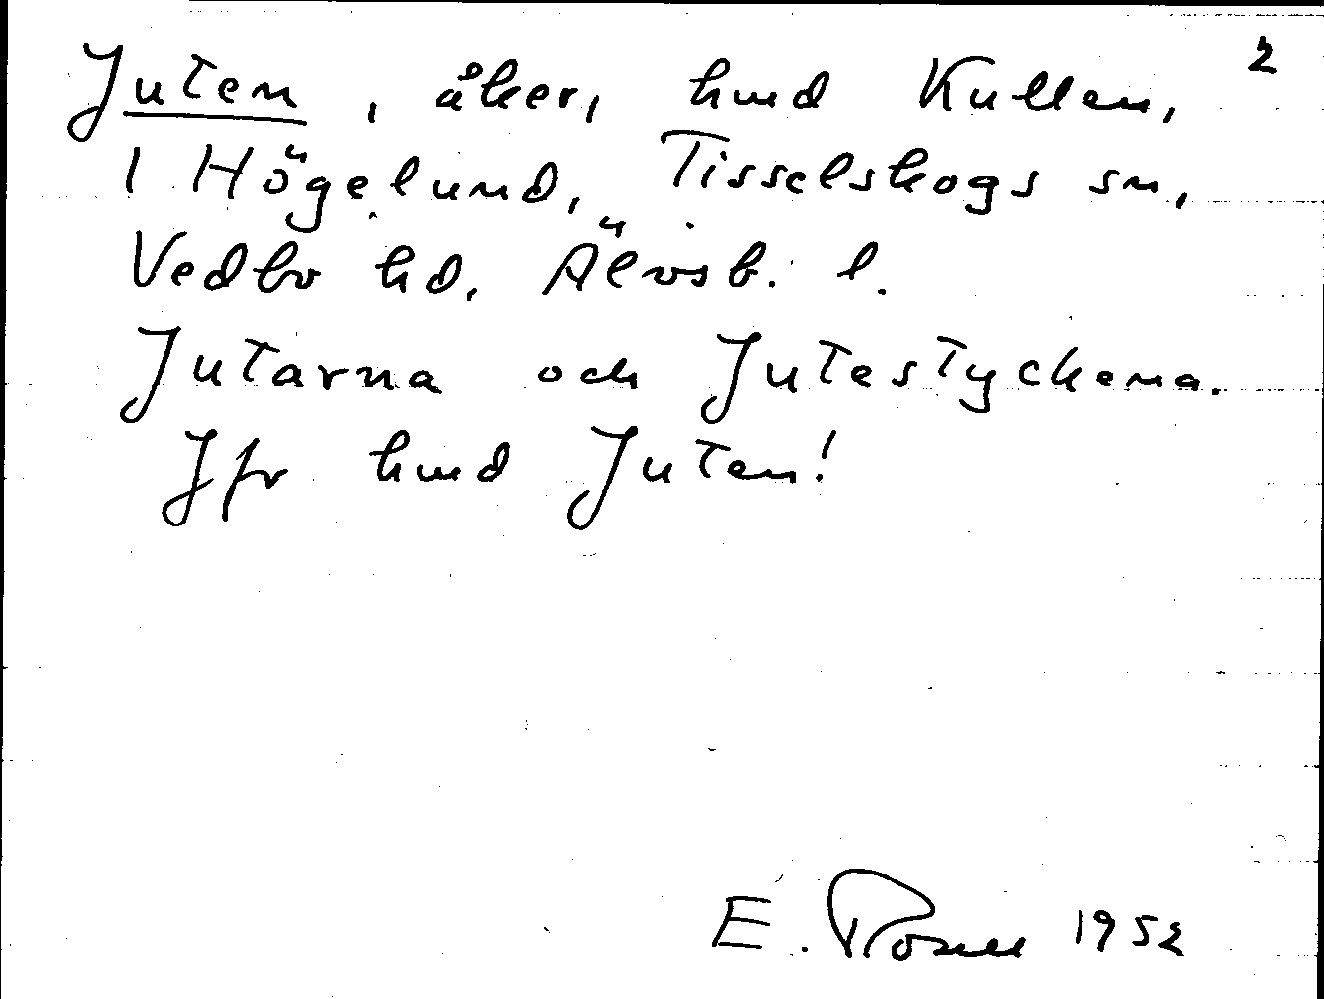 Juten, åker, hmd Kullen, 2
1 Högelund, Tisselskogs sn,
Vedbo hd, Älvsb. l.
Jutarna och Jutestyckena.
Jfr hmd Juten!
E. Rosell 1952